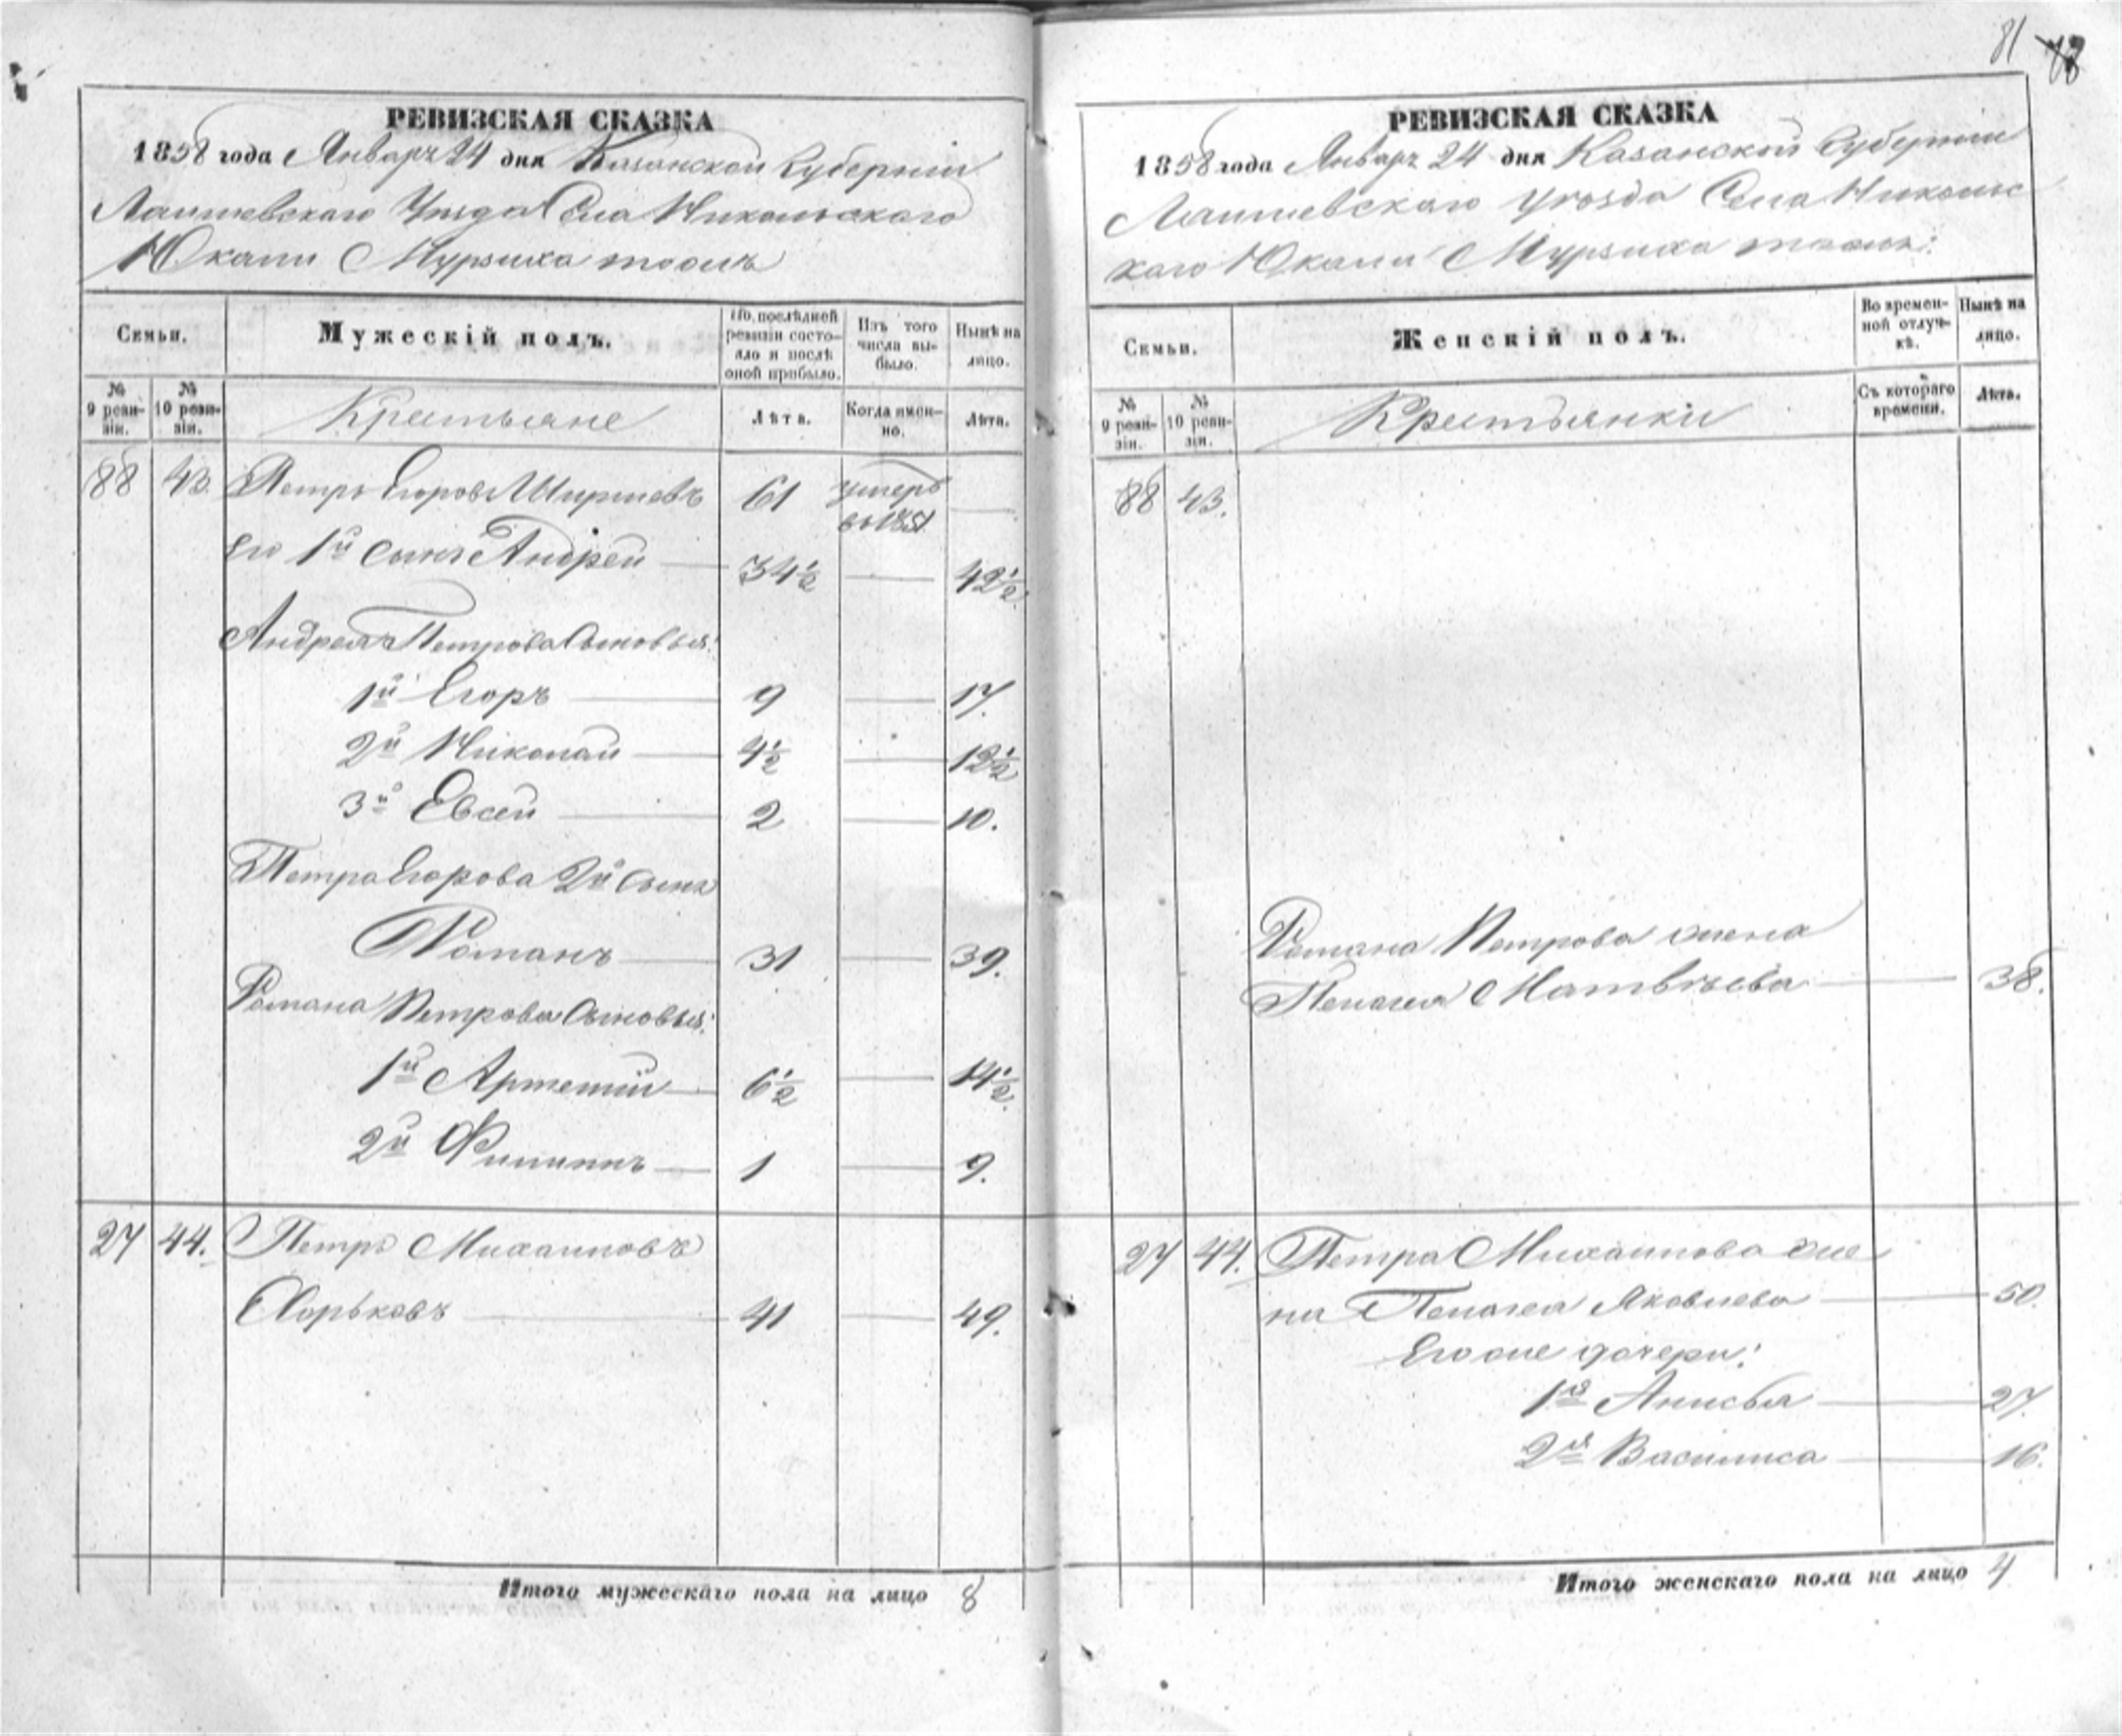 81 78
РЕВИЗСКАЯ СКАЗКА
1858 года Январь 24 дня Казанской Губернии
Лаишевскаго Уѣзда Села Никольскаго
Юкачи Мурзиха тожъ
Семьи.
Мужескій полъ.
По послѣдней ревизіи состояло и послѣ оной прибыло.
Изъ того числа выбыло.
Нынѣ на лицо.
№ 9 ревизіи.
№ 10 ревизіи.
Крестьяне
Лѣта.
Когда именно.
Лѣта.
88 43. Петръ Егоровъ 61 умеръ
въ 1851.
Его 1й сынъ Андрей 34½ 42½
Андрея Петрова сыновья:
1й Егоръ 9 17.
2й Николай 4½ 12½
3й Евсей 2 10.
Петра Егорова 2й сынъ
Романъ 31 39.
Романа Петрова сыновья:
1й Артемій 6½ 14½.
2й Филиппъ 1 9.
27 44. Петръ Михайловъ
Хорьковъ 41 49.
Итого мужескаго пола на лицо 8
РЕВИЗСКАЯ СКАЗКА
1858 года Январь 24 дня Казанской Губернии
Лаишевскаго Уѣзда Села Николь
скаго Юкачи Мурзиха тожъ:
Семьи.
Женскій полъ.
Во временной отлучкѣ.
Нынѣ на лицо.
№ 9 ревизіи.
№ 10 ревизіи.
Крестьянки
Съ котораго времени.
Лѣта.
88 43.
Романа Петрова жена
Пелагея Матвѣева 38.
27 44. Петра Михайлова же
на Пелагея Яковлева 50.
Его же дочери:
1я Анисья 27.
2я Василиса 16.
Итого женскаго пола на лицо 4